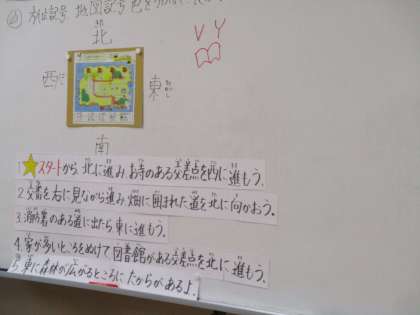 方位記号 地図記号 色を
北
西 東
南
V Y
1.スタートから 北に進み お寺のある交差点を西に進もう。
2.交番を右に見ながら進み 畑に囲まれた道を北に向かおう。
3.消防署のある道に出たら東に進もう。
4.家が多いところをぬけて 図書館がある交差点を北に 進もう。
5.東に森林が広がるところに たからがあるよ。